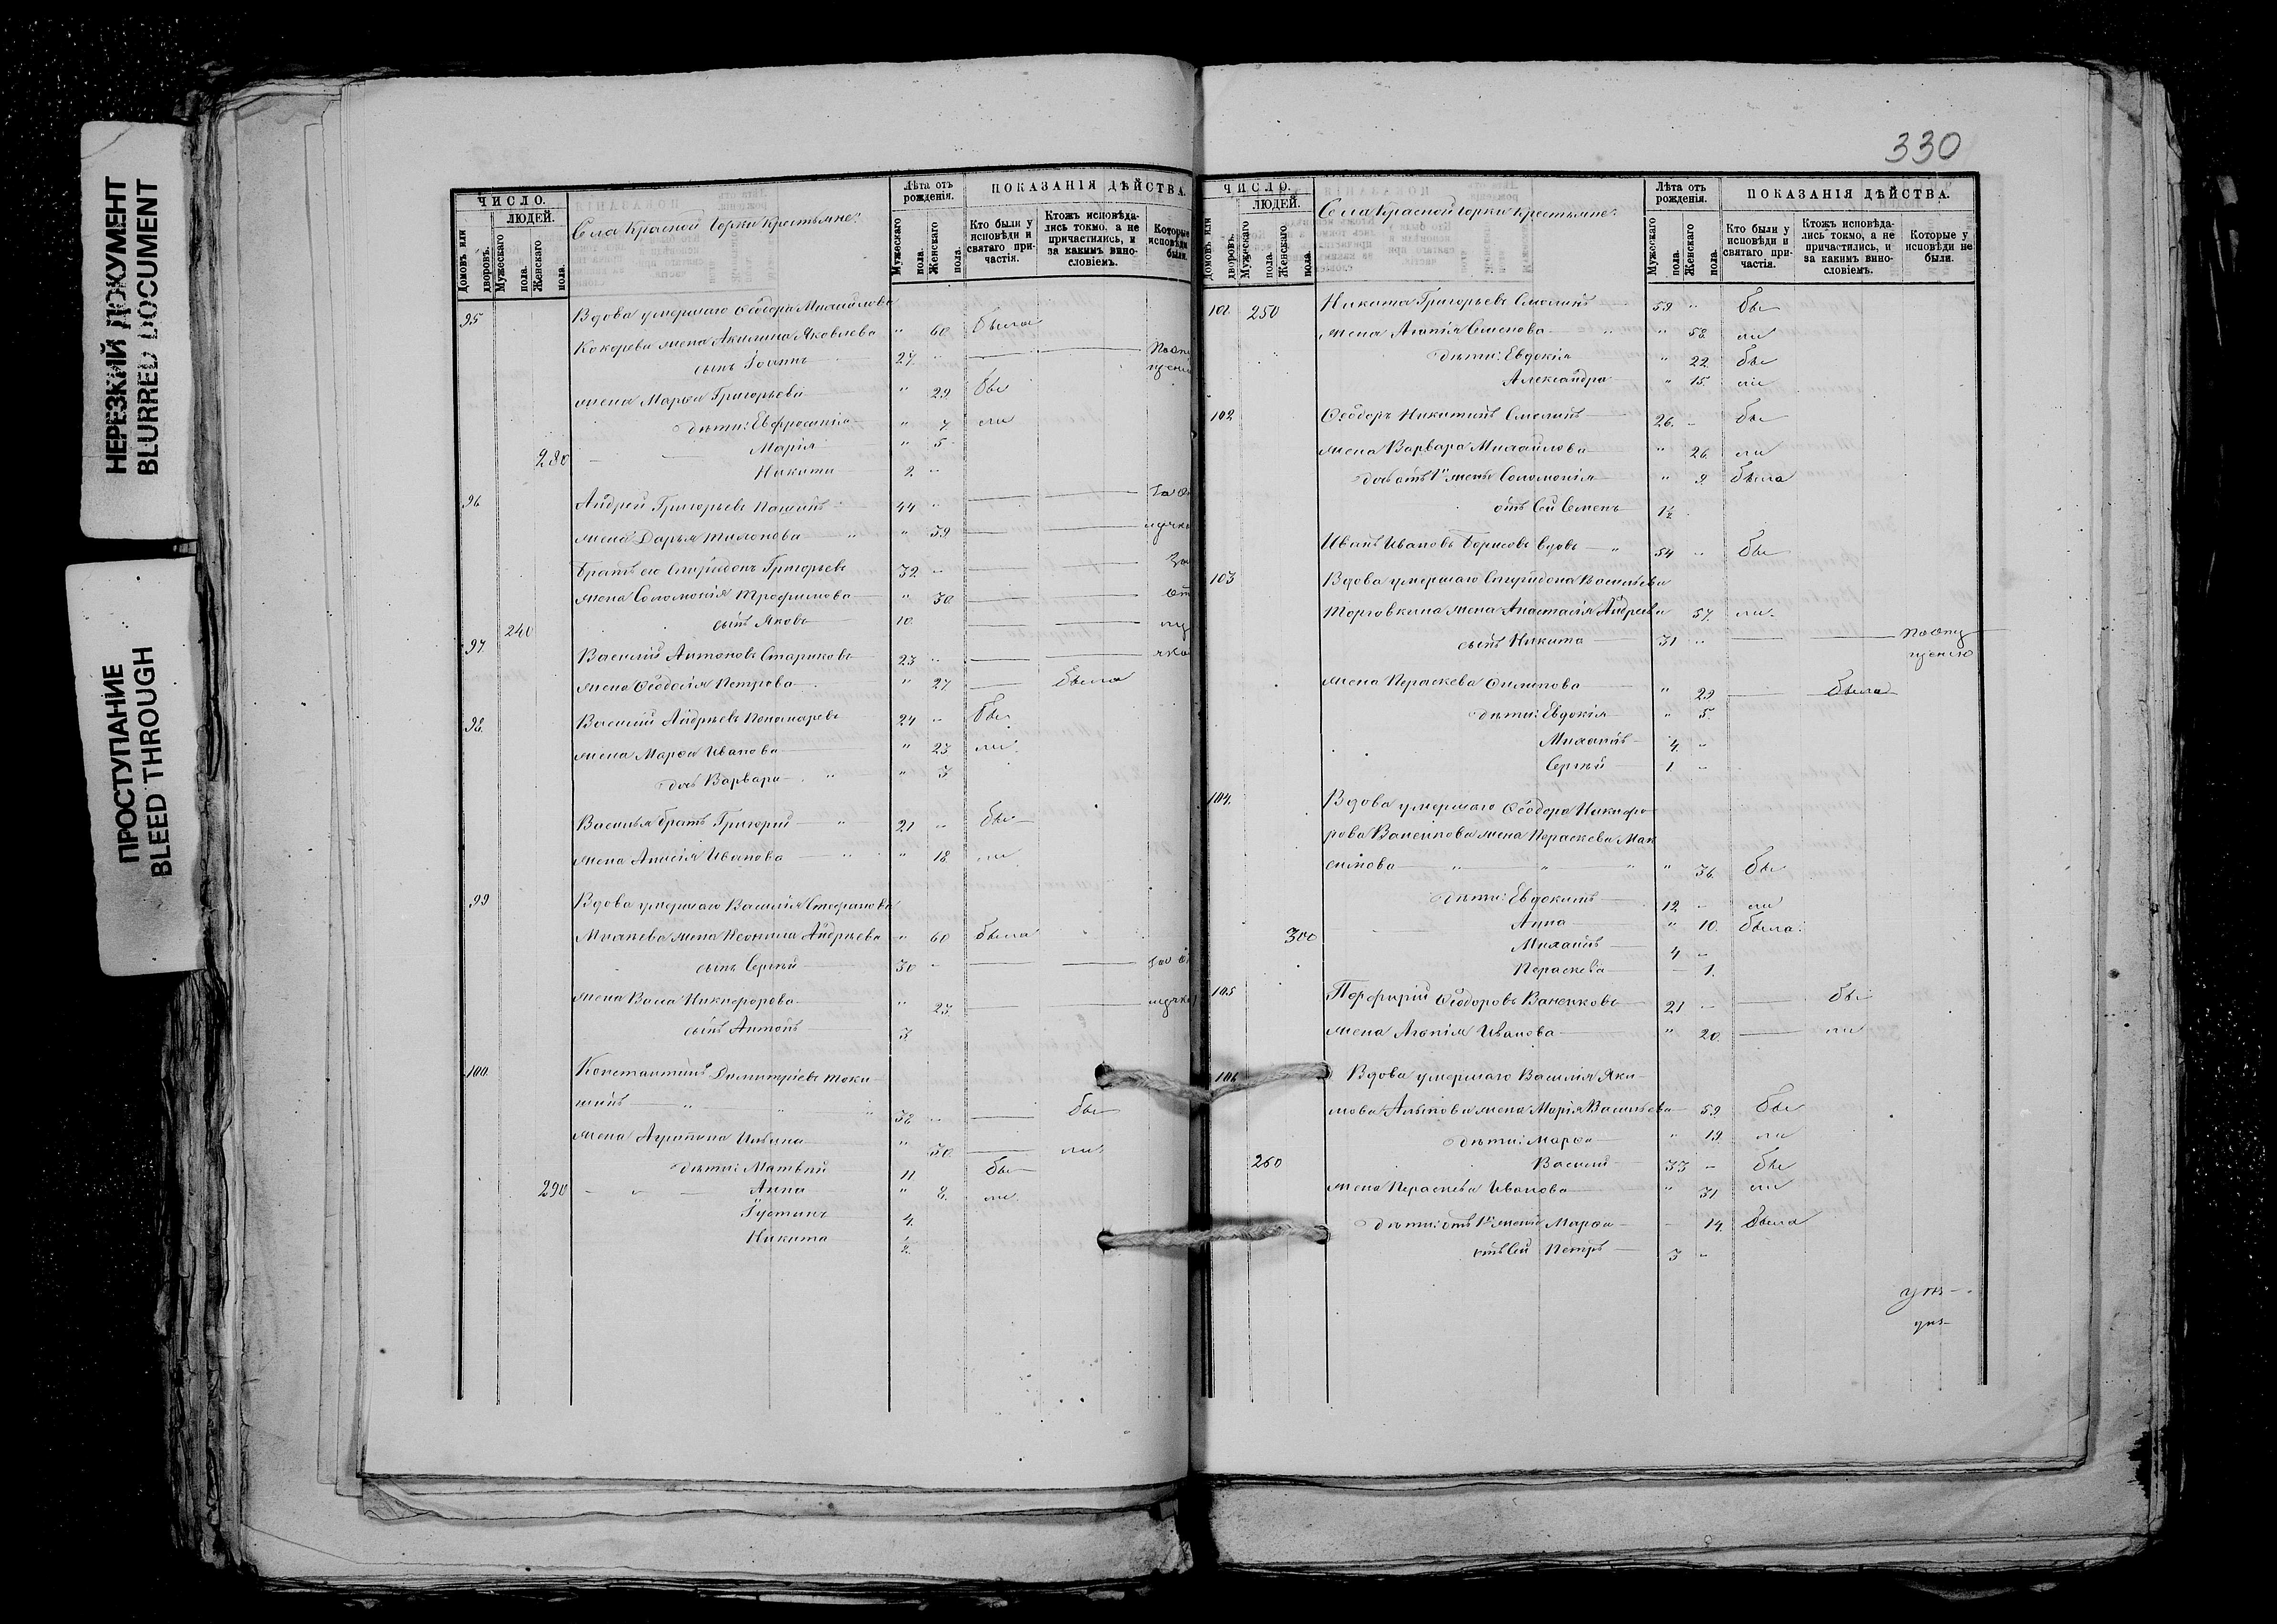 НЕРЕЗКИЙ ДОКУМЕНТ
BLURRED DOCUMENT
ПРОСТУПАНИЕ
BLEED THROUGH
ЧИСЛО.
ЛЮДЕЙ.
Домовъ или дворовъ.
Мужескаго пола.
Женскаго пола.
Села Красной Горки Крестьяне:
Лѣта отъ рожденія.
Мужескаго пола.
Женскаго пола.
ПОКАЗАНІЯ ДѢЙСТВА.
Кто были у исповѣди и святаго причастія.
Ктожъ исповѣдались токмо, а не причастились, и за какимъ винословіемъ.
Которые исповѣди были.
95 Вдова умершаго Ѳеодора Михайлова
Кокорева жена Акилина Яковлева " 60 была
сынъ Іоаннъ 27 " По отпу
жена Марѳа Григорьева " 29 бы
дѣти: Евфросинія " 7 ли
280 Марія " 5
Никита 2 "
96 Андрей Григорьевъ 44 " За от
жена Дарья " 39 лучк
Братъ его Спиридонъ Григорьевъ 32 " За
жена Соломонія Трофимова " 30 от
240 сынъ Яковъ 10 лу
97 Василій Антоновъ Стариковъ 23 " чко
жена Ѳеодосія Петрова " 27 была
98 Василій Андреевъ Пономаревъ 24 " бы
жена Марѳа Иванова " 23 ли
дочь Варвара " " 3
Василья братъ Григорій " 21 " бы
жена Анисія Иванова " " 18 ли
99 Вдова умершаго Василія Стефанова
жена Неонила Андреева " 60 была
сынъ Сергѣй 30 " За от
жена Васса Никифорова " 23 лучко
сынъ Антонъ 3
100 Константинъ Димитріевъ Токи-
шинъ " " " 32 " бы
жена Агрипина Ильина " 30 ли
дѣти: Матвѣй 11 бы
290 Анна " 8 ли
Іустинъ 4
Никита ½
330
ЧИСЛО.
ЛЮДЕЙ.
Домовъ или дворовъ.
Мужескаго пола.
Женскаго пола.
Села Красной Горки Крестьяне:
Лѣта отъ рожденія.
Мужескаго пола.
Женскаго пола.
ПОКАЗАНІЯ ДѢЙСТВА.
Кто были у исповѣди и святаго причастія.
Ктожъ исповѣдались токмо, а не причастились, и за какимъ винословіемъ.
Которые у исповѣди не были.
101 250 Никита Григорьевъ Смолинъ 59 " бы
жена Агапія Семенова " " 58 ли
дѣти: Евдокія " 22 бы
Александра " 15 ли
102 Ѳеодоръ Никитинъ Смолинъ 26 " бы
жена Варвара Михайлова " 26 ли
дочь отъ 1й жены Соломонія " 9 была
отъ сей Семенъ 1½
Иванъ Ивановъ Борисовъ вдовъ " 54 " бы
103 Вдова умершаго Спиридона Васильева
Торговкина жена Анастасія Андреева 57 ли
сынъ Никита 31 " По отпу
щенію
жена Параскева Филипова " 29 была
дѣти: Евдокія " 5
Михаилъ 4 "
Сергѣй 1 "
104 Вдова умершаго Ѳеодора Никифо
рова Ваненкова жена Параскева Мак
симова " " " " 36 бы
дѣти: Евдокимъ 12 " ли
Анна " 10 была
300 Михаилъ 4 "
Параскева 1
105 Порфирій Ѳеодоровъ Ваненковъ 21 " бы
жена Агапія Иванова " 20 ли
106 Вдова умершаго Василія Яки-
мова жена Марія Васильева 59 бы
дѣти: Марѳа " 19 ли
260 Василій 33 " бы
жена Параскева Иванова " 31 ли
дѣти: отъ 1й жены Марѳа 14 была
отъ сей Петръ 3 "